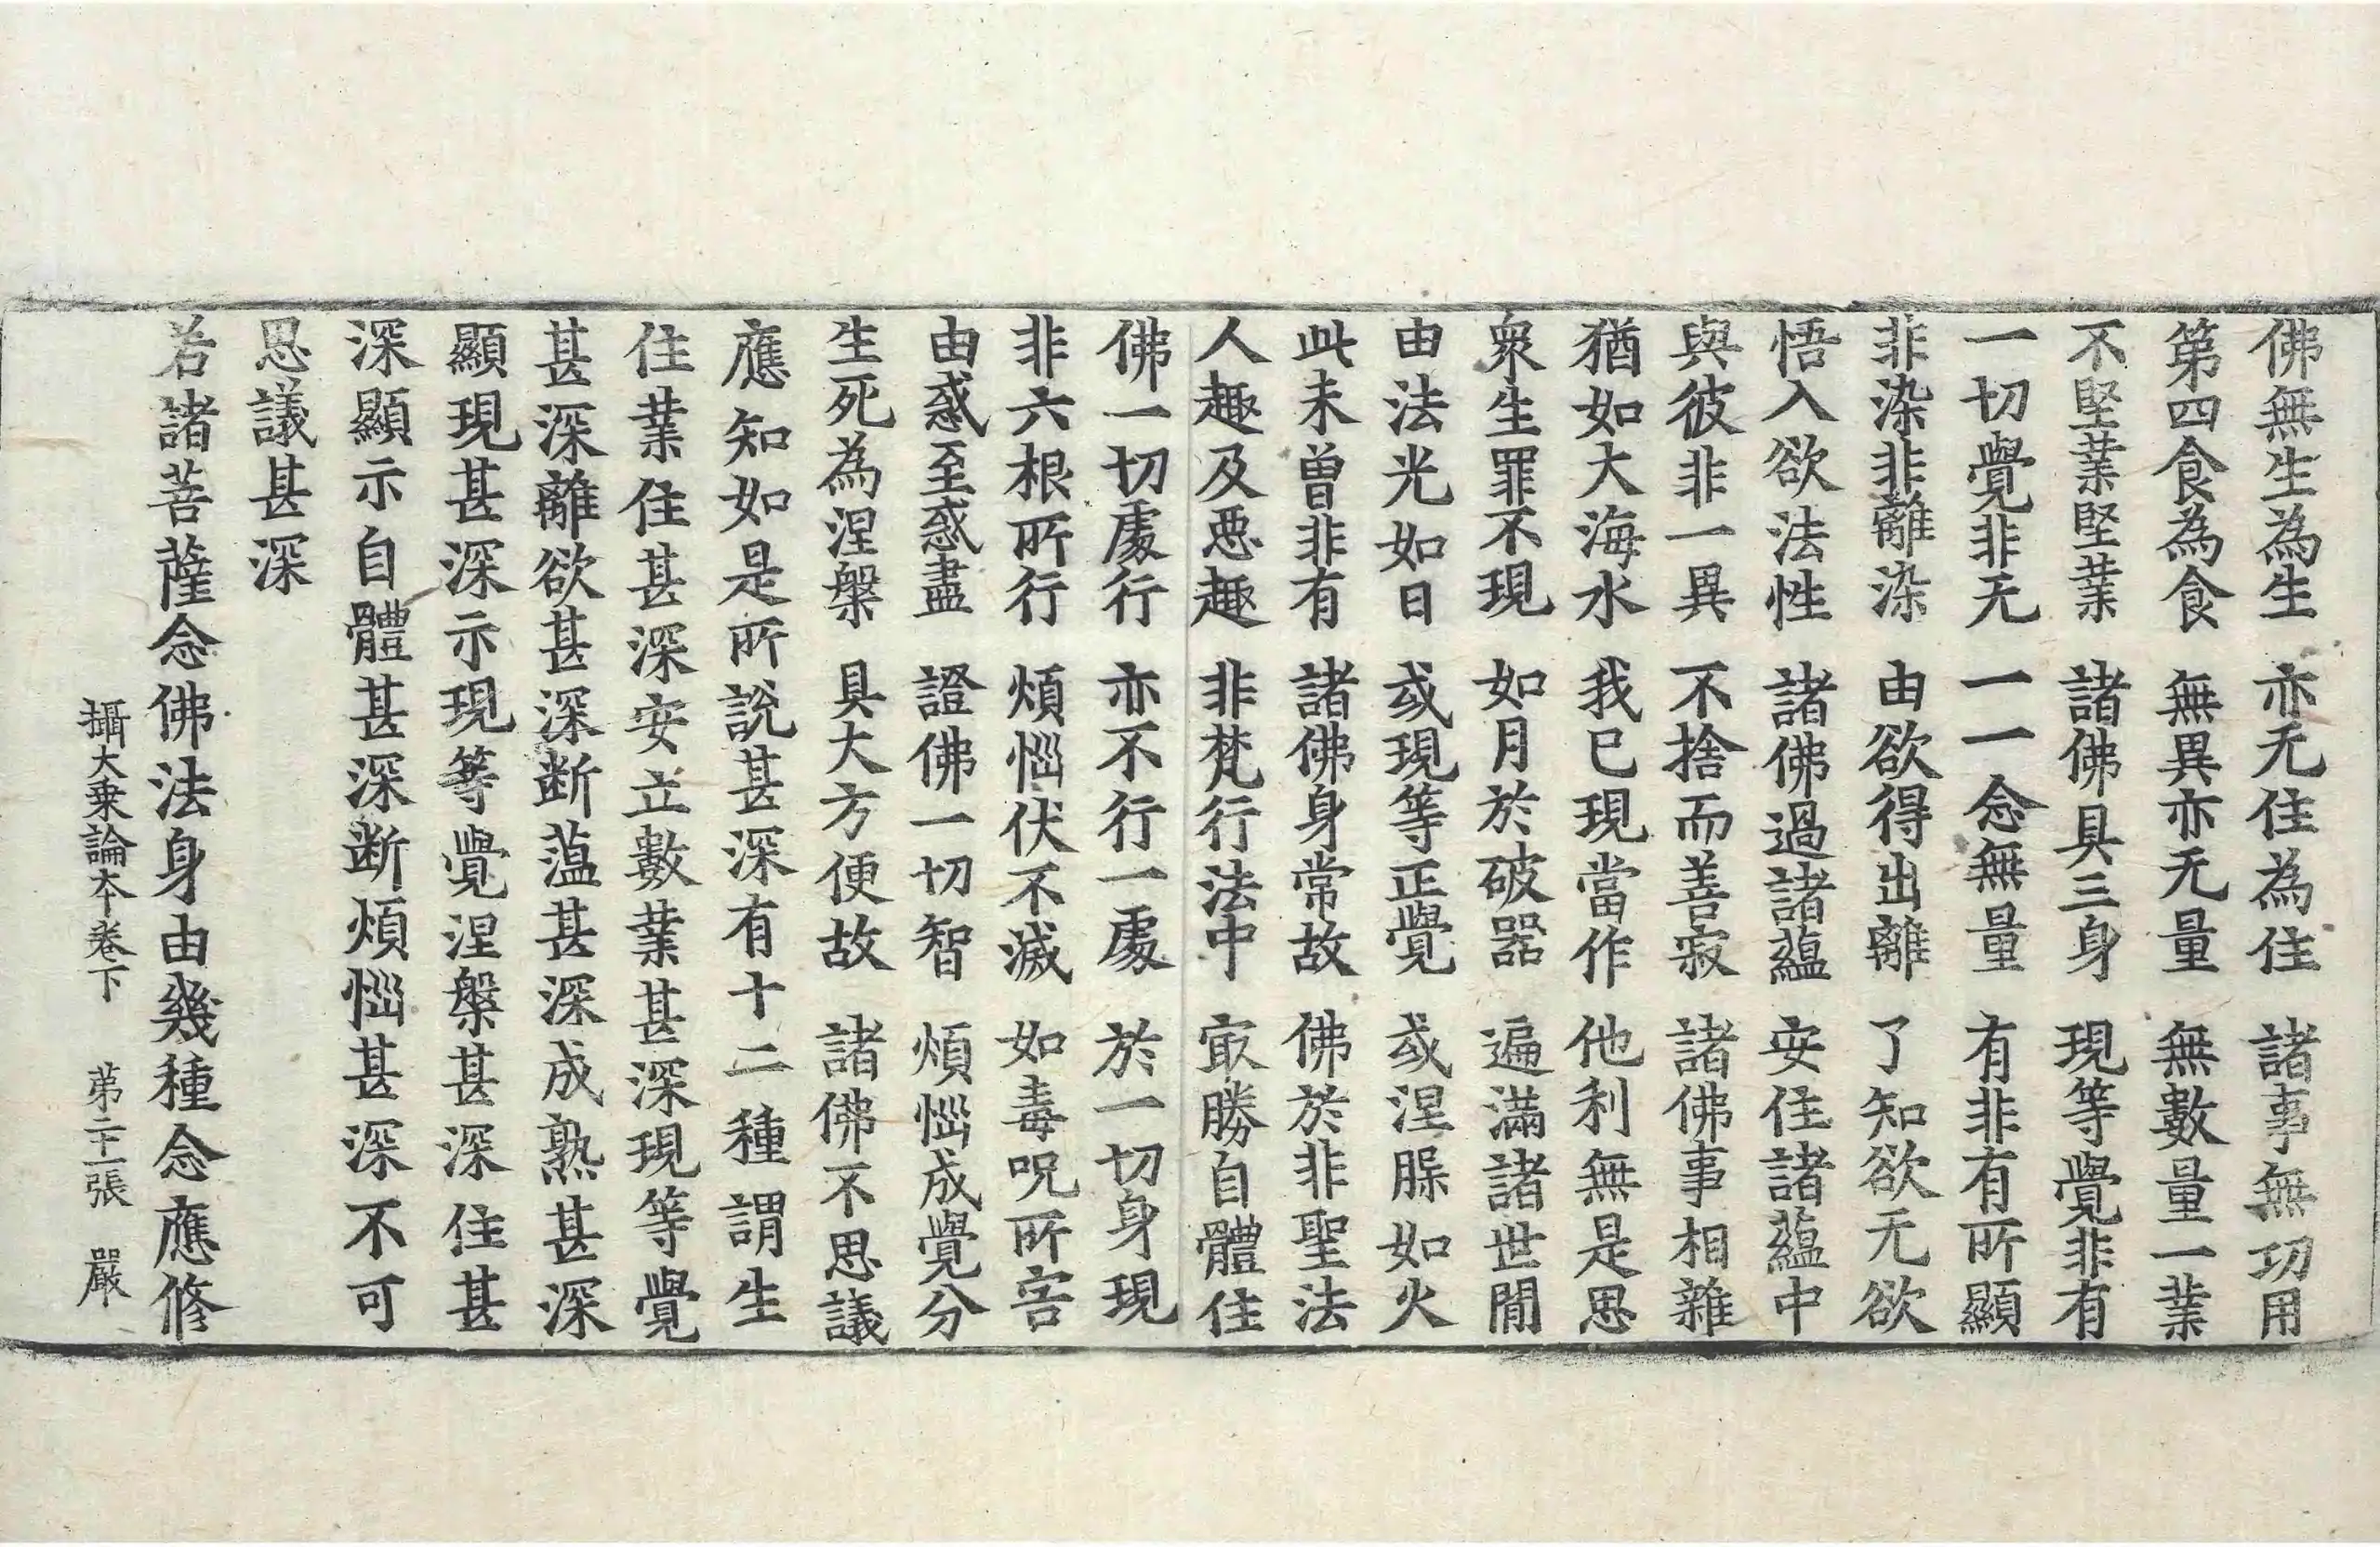 佛無生為生　亦无住為住　諸事無功用
第四食為食　無異亦无量　無數量一業
不堅業堅業　諸佛具三身　現等覺非有
一切覺非无　一一念無量　有非有所顯
非染非離染　由欲得出離　了知欲无欲
悟入欲法性　諸佛過諸蘊　安住諸蘊中
與彼非一異　不捨而善寂　諸佛事相雜
猶如大海水　我已現當作　他利無是思
衆生罪不現　如月於破器　遍滿諸世間
由法光如日　或現等正覺　或涅脲如火
此未曾非有　諸佛身常故　佛於非聖法
人趣及惡趣　非梵行法中　㝡勝自體住
佛一切處行　亦不行一處　於一切身現
非六根所行　煩惱伏不滅　如毒呪所害
由惑至惑盡　證佛一切智　煩惱成覺分
生死為涅槃　具大方便故　諸佛不思議
應知如是所說甚深有十二種謂生
住業住甚深安立數業甚深現等覺
甚深離欲甚深断薀甚深成熟甚深
顯現甚深示現等覺涅槃甚深住甚
深顯示自體甚深断煩惱甚深不可
思議甚深
若諸菩薩念佛法身由幾種念應修
攝大乗論本卷下　第二十一張　嚴